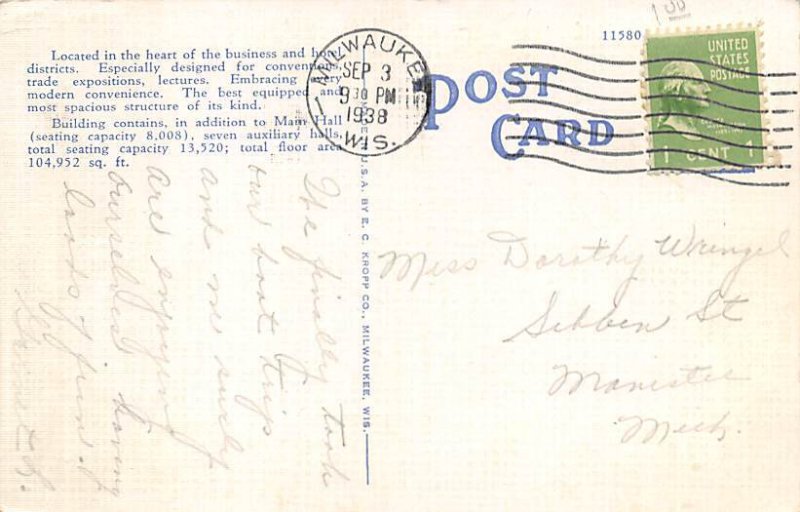 Located in the heart of the business and hotel
districts. Especially designed for conventions,
trade expositions, lectures. Embracing every
modern convenience. The best equipped and
most spacious structure of its kind.
Building contains, in addition to Main Hall
(seating capacity 8,008), seven auxiliary halls,
total seating capacity 13,520; total floor area
104,952 sq. ft.
MILWAUKEE
SEP 3
9 30 PM
1938
WIS.
11580
POST
CARD
UNITED
STATES
POSTAGE
1 CENT 1
U.S.A. BY E. C. KROPP CO., MILWAUKEE, WIS.
Miss Dorothy Wrengel
Sibben St
Manistee
Mich.
The finally took
our boat trip
and we surely
are enjoying
ourselves having
loads of fun.